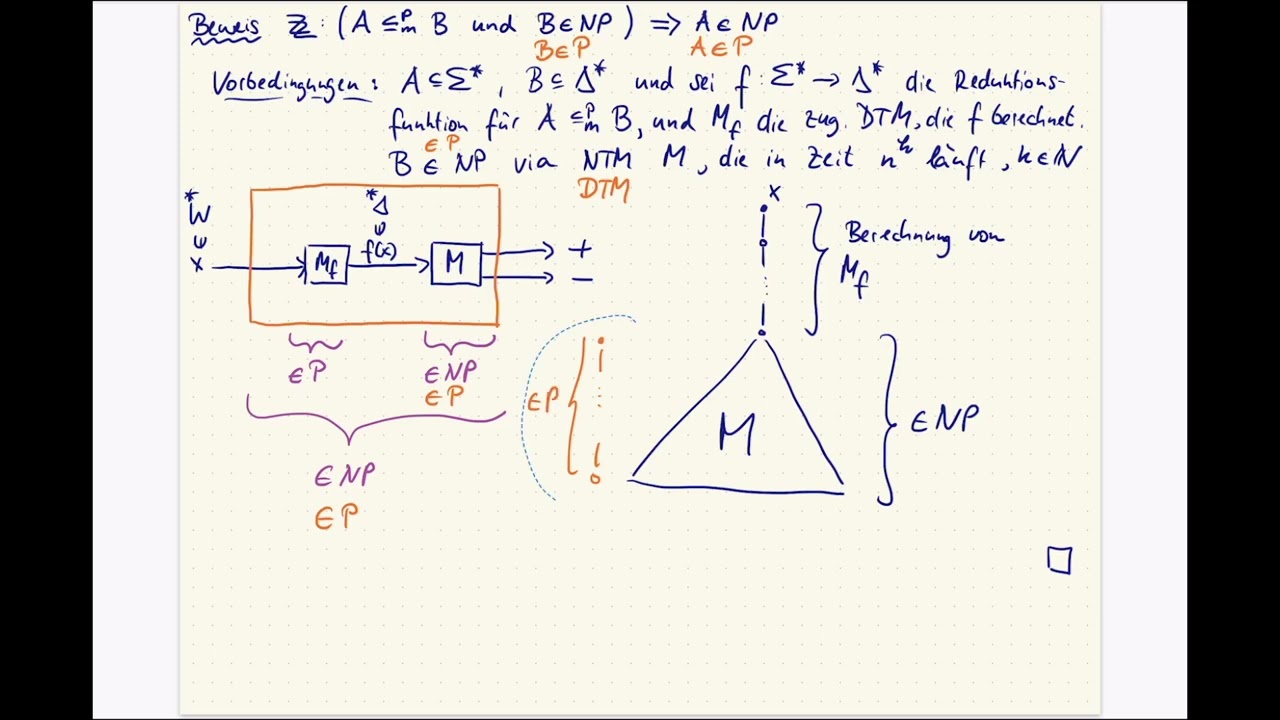 Beweis Z: (A ≤ᵖₘ B und B ∈ NP) ⇒ A ∈ NP
B∈P A∈P
Vorbedingungen: A ⊆ Σ*, B ⊆ Δ* und sei f: Σ* → Δ* die Reduktions-
funktion für A ≤ᵖₘ B, und M_f die zug. DTM, die f berechnet.
∈ P
B ∈ NP via NTM M, die in Zeit nᵏ läuft, k∈ℕ
DTM
Σ* Δ* x
x M_f f(x) M + −
Berechnung von
M_f
∈ P ∈ NP
∈ P
∈P M ∈ NP
∈ NP
∈ P